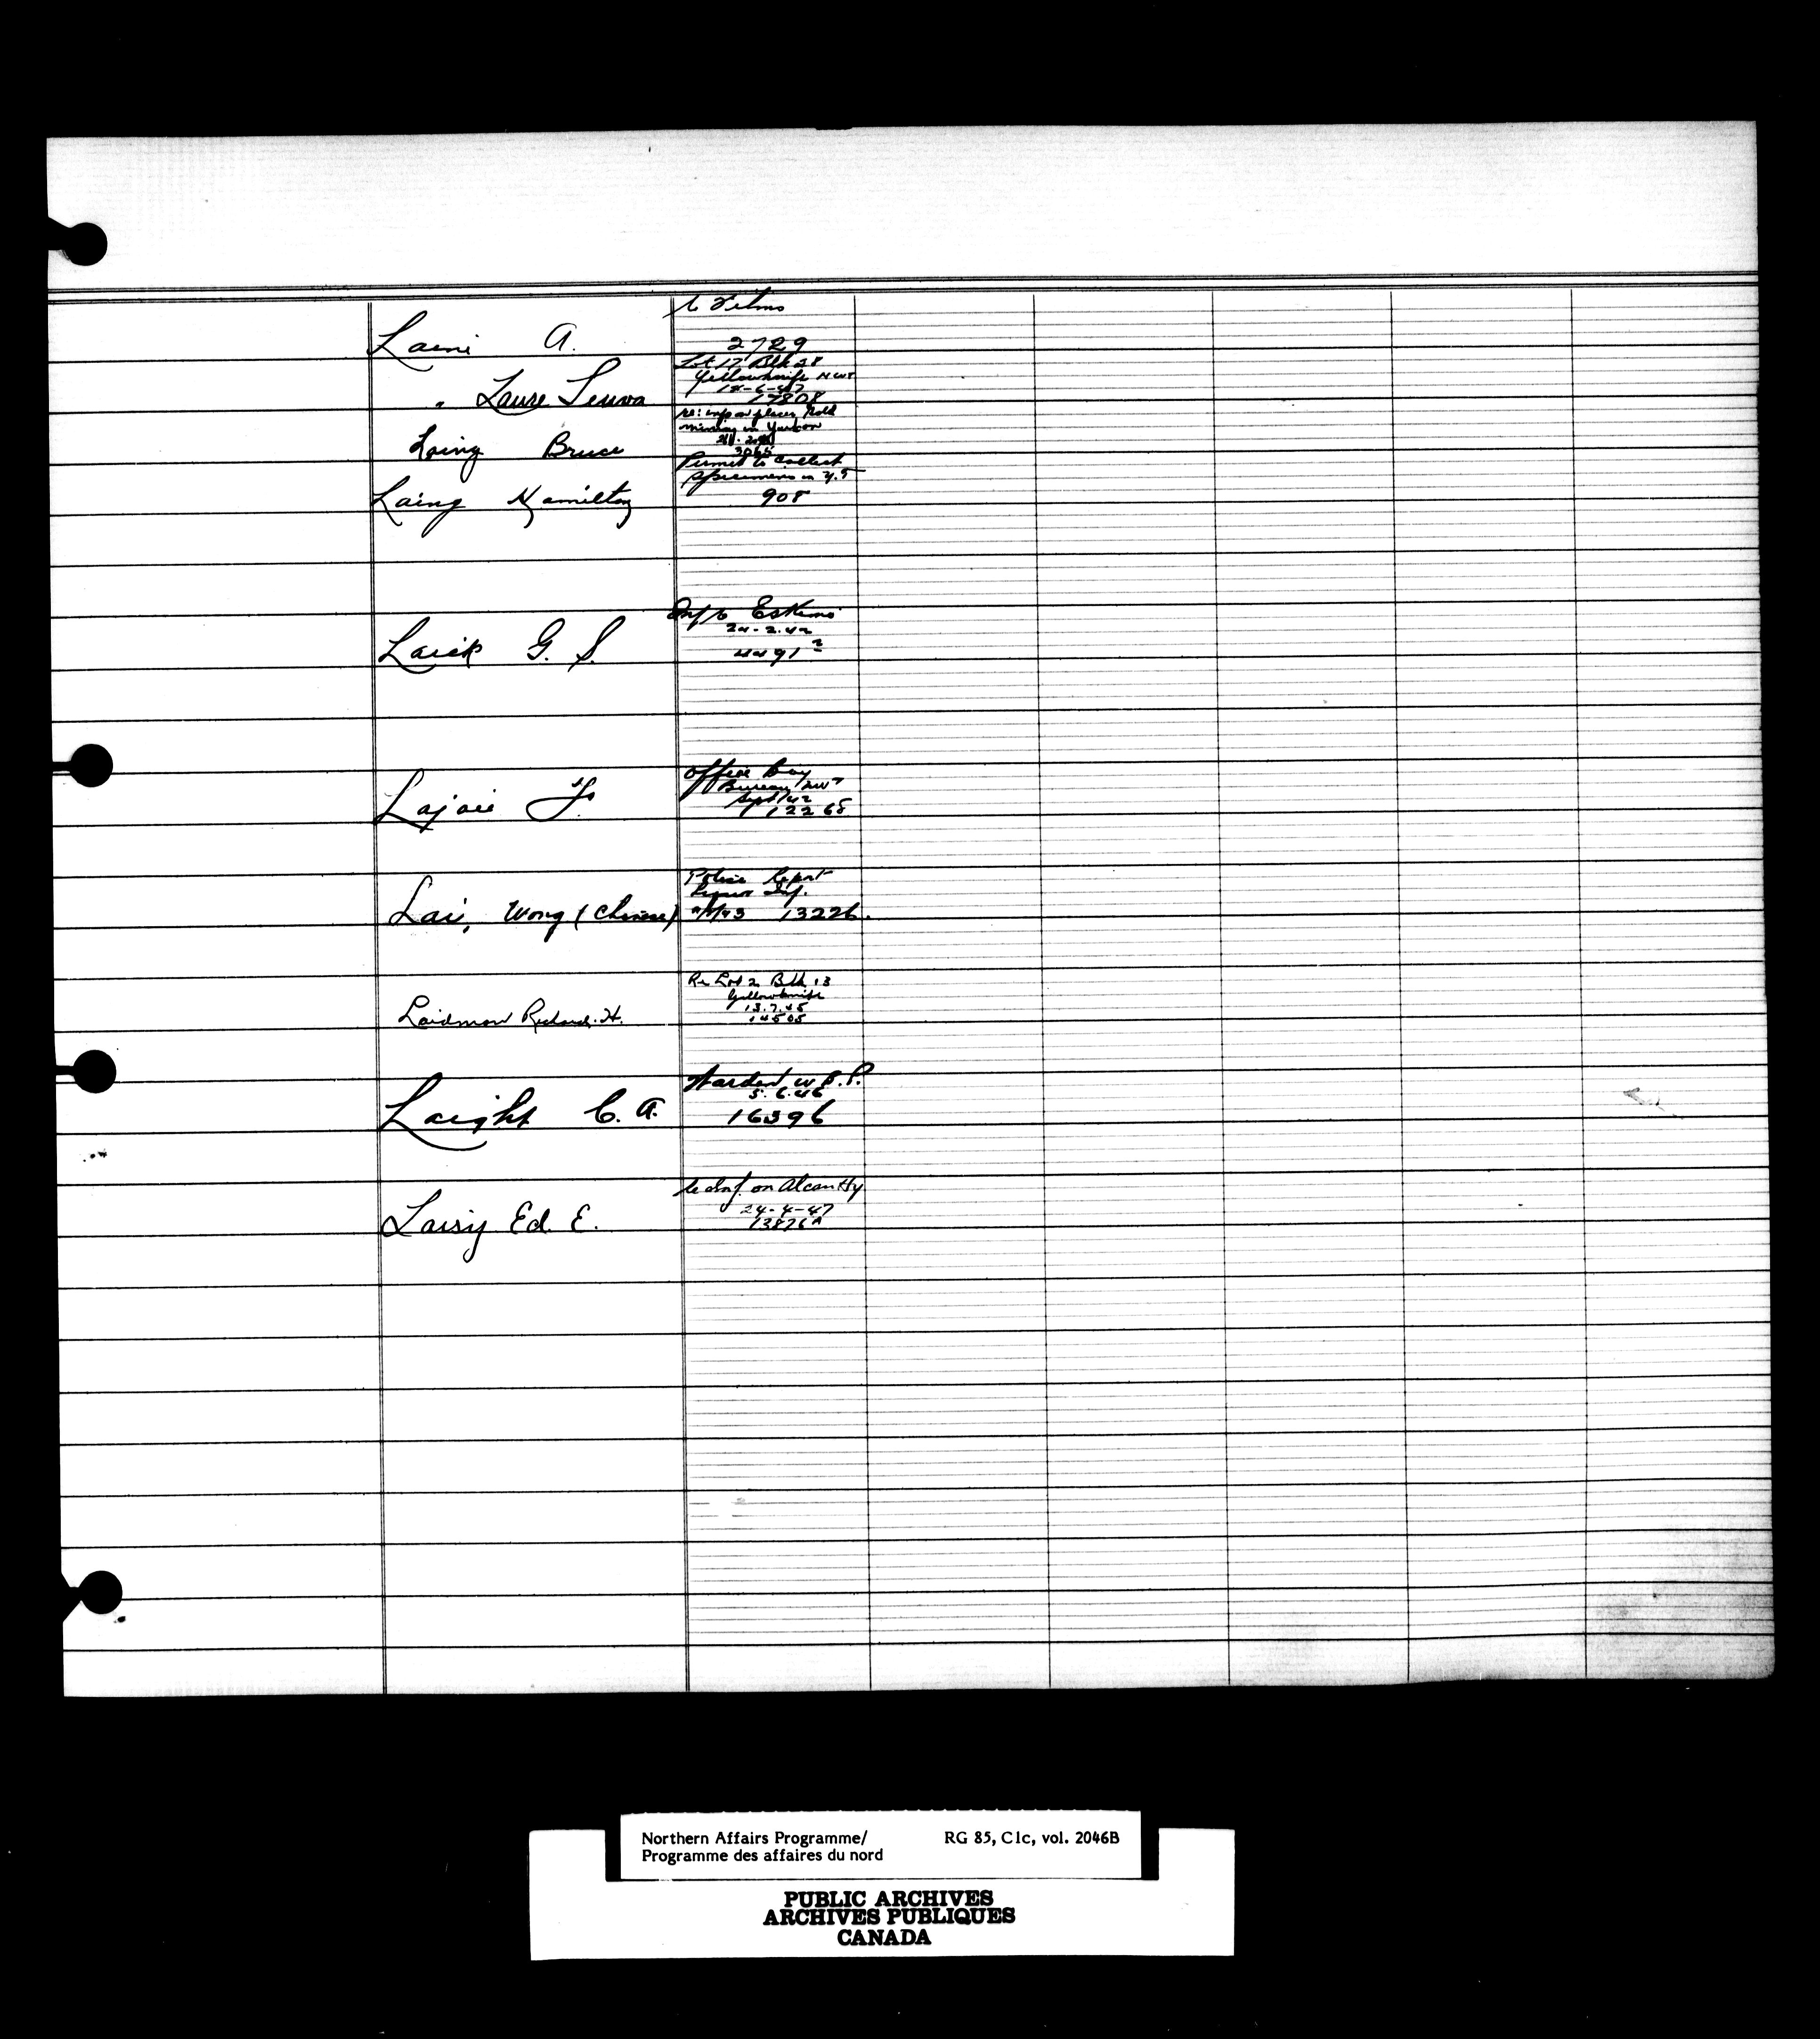 re Films
Laini A. 2729
Lot 17 Blk 28
Yellowknife NWT
18-6-47
" Laure Senva 17808
re: info on placer gold
mining in Yukon
Laing Bruce 3065
Permit to collect
specimens in Y.T
Laing Hamilton 908
Inf re Eskimo
24-2-42
Laick G. S. 4491
Office boy
Bureau NWT
Sept/42
Lajoie F. 12268
Police Report
Liquor Inf.
Lai, Wong (Chinese) 13226.
Re Lot 2 Blk 13
Yellowknife
13.7.45
Laidman Richard. H. 14505
Warden W.B.P.
5.6.46
Laight C. A. 16396
re Inf. on Alcan Hy
24-4-47
Laisy Ed. E. 13876A
Northern Affairs Programme/ RG 85, C1c, vol. 2046B
Programme des affaires du nord
PUBLIC ARCHIVES
ARCHIVES PUBLIQUES
CANADA